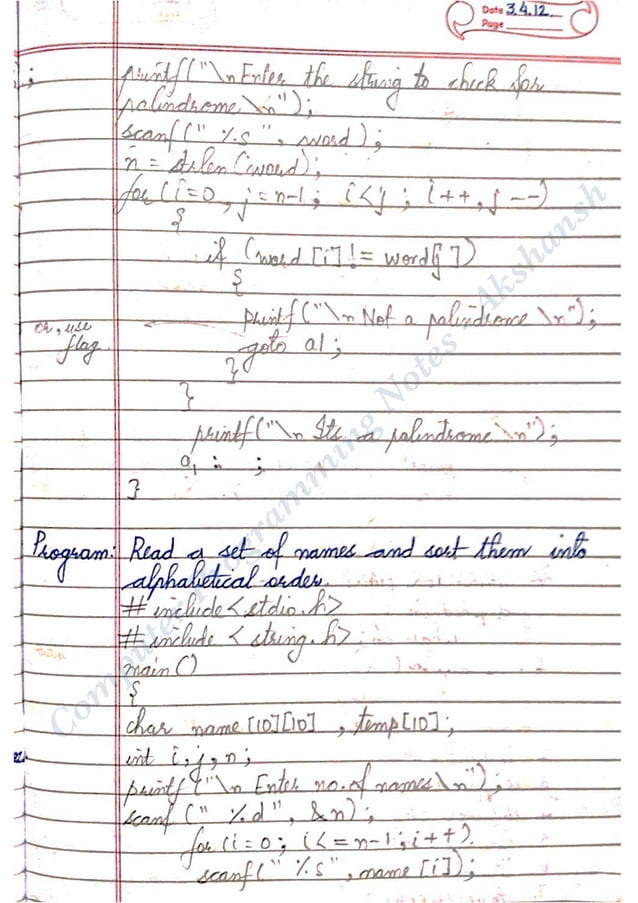 Date 3.4.12
Page
; printf("\n Enter the string to check for
palindrome \n");
scanf(" %s ", word);
n = strlen(word);
for(i=0, j=n-1; i<j; i++, j--)
{
if (word[i] != word[j])
{
printf("\n Not a palindrome \n");
or, use
flag.
goto a1;
}
}
printf("\n Its a palindrome \n");
a1 : ;
}
Program: Read a set of names and sort them into
alphabetical order.
# include<stdio.h>
# include <string.h>
main()
{
char name[10][10], temp[10];
int i,j,n;
printf("\n Enter no. of names\n");
scanf(" %d", &n);
for(i=0; i<=n-1; i++)
scanf(" %s", name[i]);
Computer Programming Notes - Akshansh